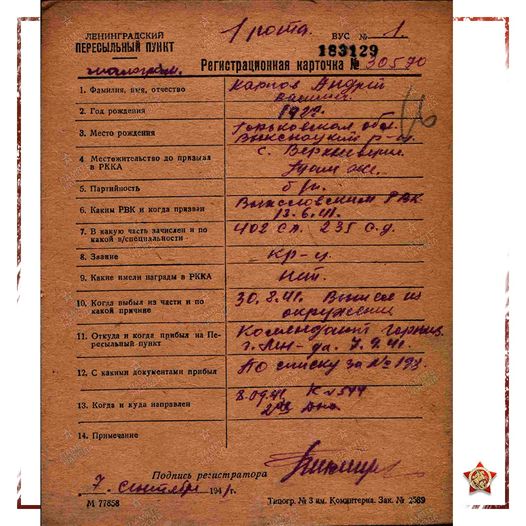 ЛЕНИНГРАДСКИЙ
ПЕРЕСЫЛЬНЫЙ ПУНКТ
1 рота.
ВУС № 1
183129
Регистрационная карточка № 30570
1. Фамилия, имя, отчество Карпов Андрей
2. Год рождения
3. Место рождения Горьковская обл.
Выксунский р-н
4. Местожительство до призыва в РККА с.
Там же.
5. Партийность б/п.
6. Каким РВК и когда призван РВК
7. В какую часть зачислен и по какой в/специальности 402 сп. 235 с.д.
8. Звание кр-ц
9. Какие имели награды в РККА нет.
10. Когда выбыл из части и по какой причине 30.8.41. из
окружения
11. Откуда и когда прибыл на Пересыльный пункт Комендант
7.9.41.
12. С какими документами прибыл По списку за №
13. Когда и куда направлен К 544
14. Примечание
Подпись регистратора
7. сентября 1941 г.
М 77658
Типогр. № 3 им. Коминтерна. Зак. № 2589